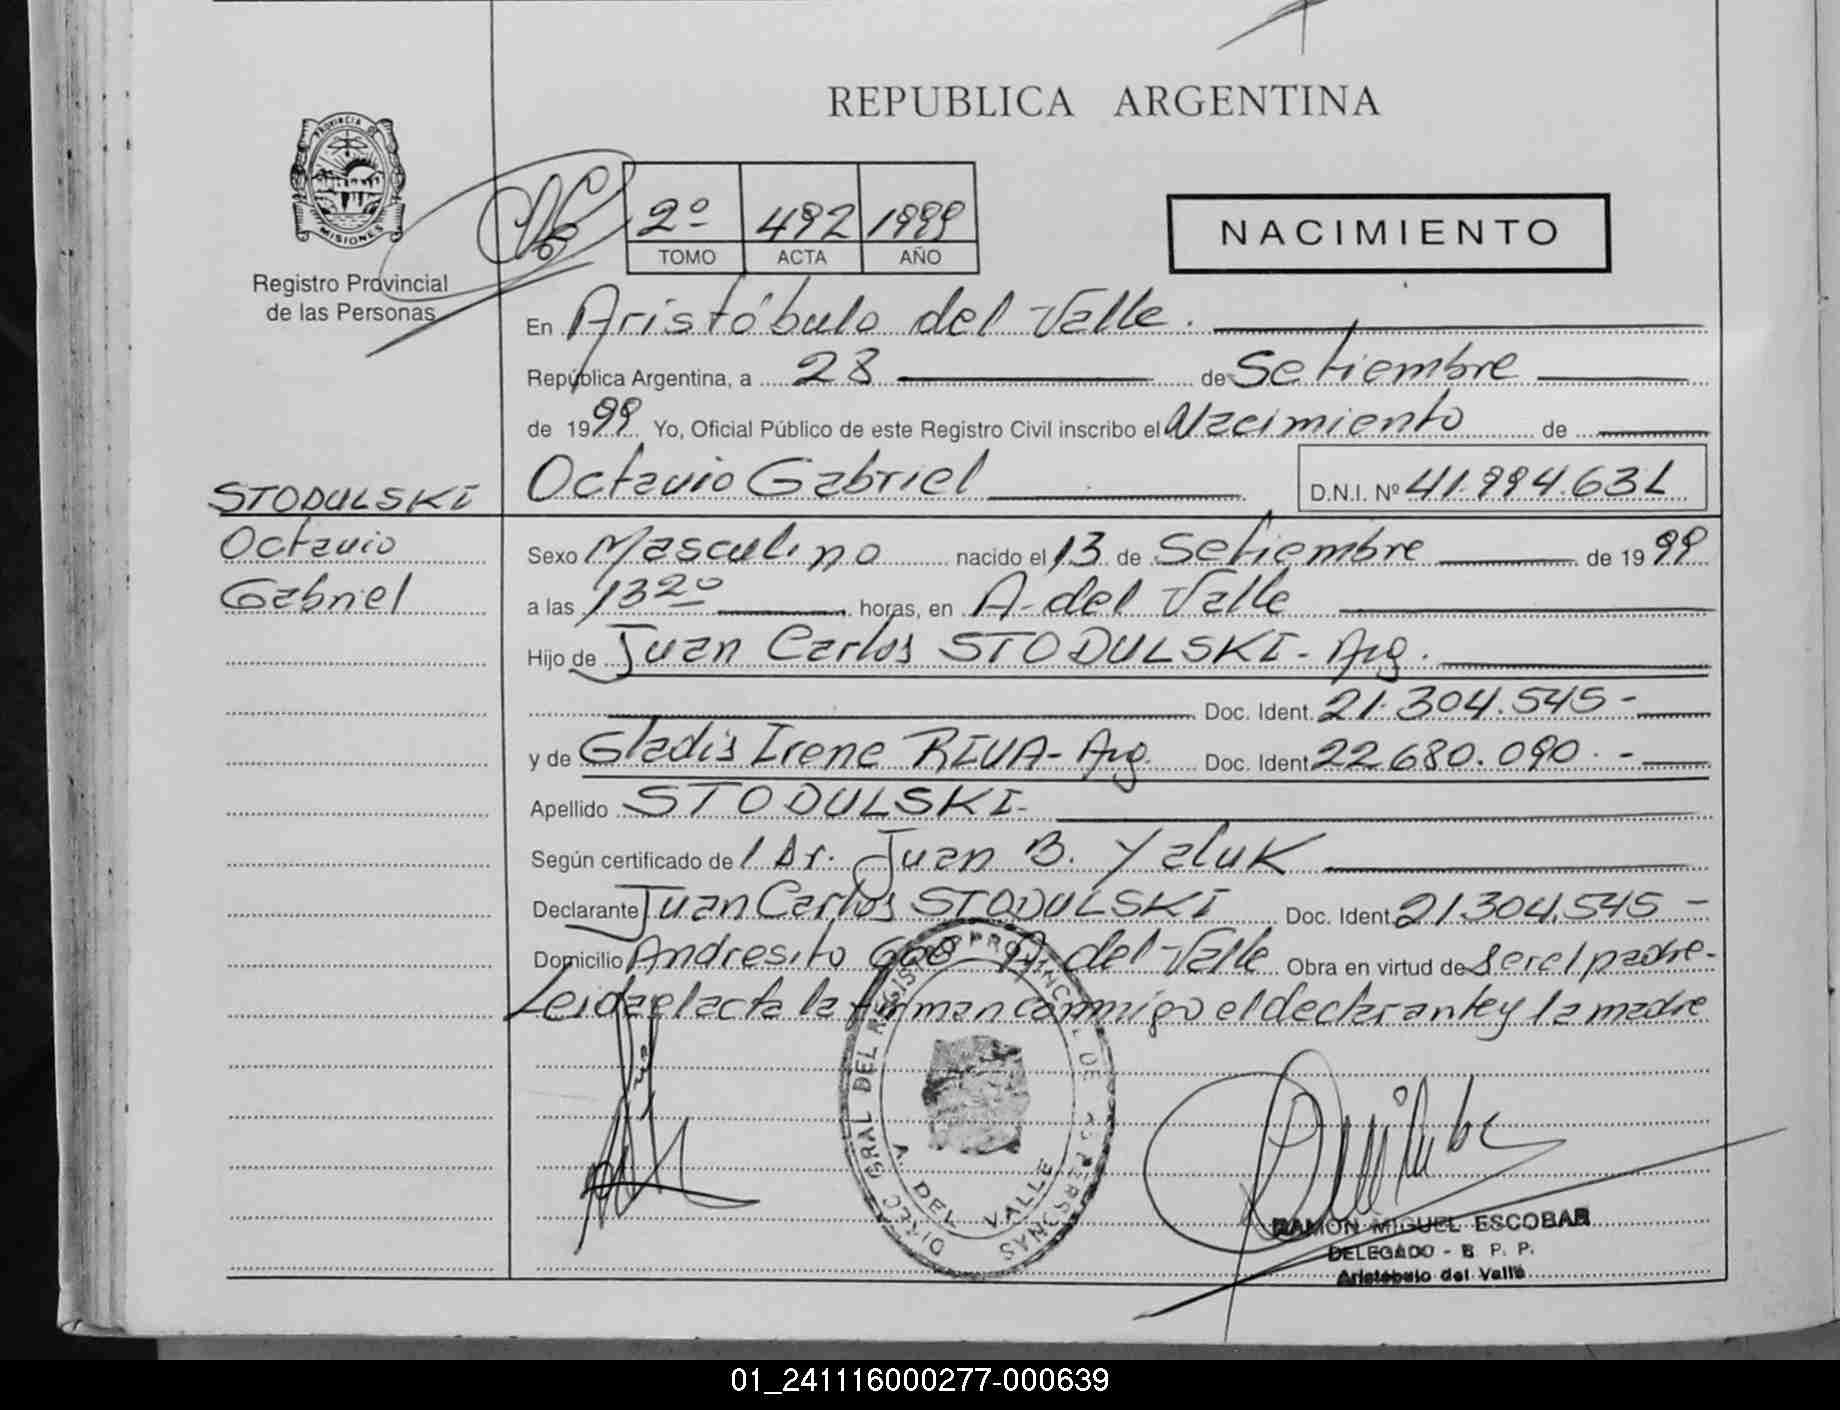 REPUBLICA ARGENTINA
PROVINCIA DE
MISIONES
Registro Provincial
de las Personas
2º 492 1999
TOMO ACTA AÑO
NACIMIENTO
En Aristóbulo del Valle.
República Argentina, a 28 de Setiembre
de 1999 Yo, Oficial Público de este Registro Civil inscribo el Nacimiento de
Octavio Gabriel D.N.I. Nº 41.994.631
STODULSKI
Octavio
Gabriel
Sexo Masculino nacido el 13 de Setiembre de 1999
a las 13²⁰ horas, en A. del Valle
Hijo de Juan Carlos STODULSKI - Arg.
Doc. Ident. 21.304.545-
y de Gladis Irene RIVA - Arg. Doc. Ident. 22.680.090.-
Apellido STODULSKI-
Según certificado de l Dr. Juan B. Yaluk
Declarante Juan Carlos STODULSKI Doc. Ident. 21.304.545-
Domicilio Andresito 608 A. del Valle Obra en virtud de ser el padre-
Leida el acta la firman conmigo el declarante y la madre
DIREC. GRAL. DEL REGISTRO PROVINCIAL DE LAS PERSONAS
A. DEL VALLE
RAMON MIGUEL ESCOBAR
DELEGADO - R. P. P.
Aristóbulo del Valle
01_241116000277-000639